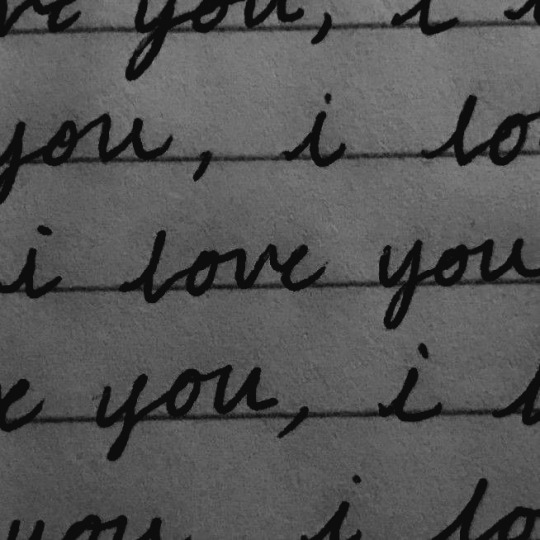 ve you, i
you, i lo
i love you
e you, i l
you i lo